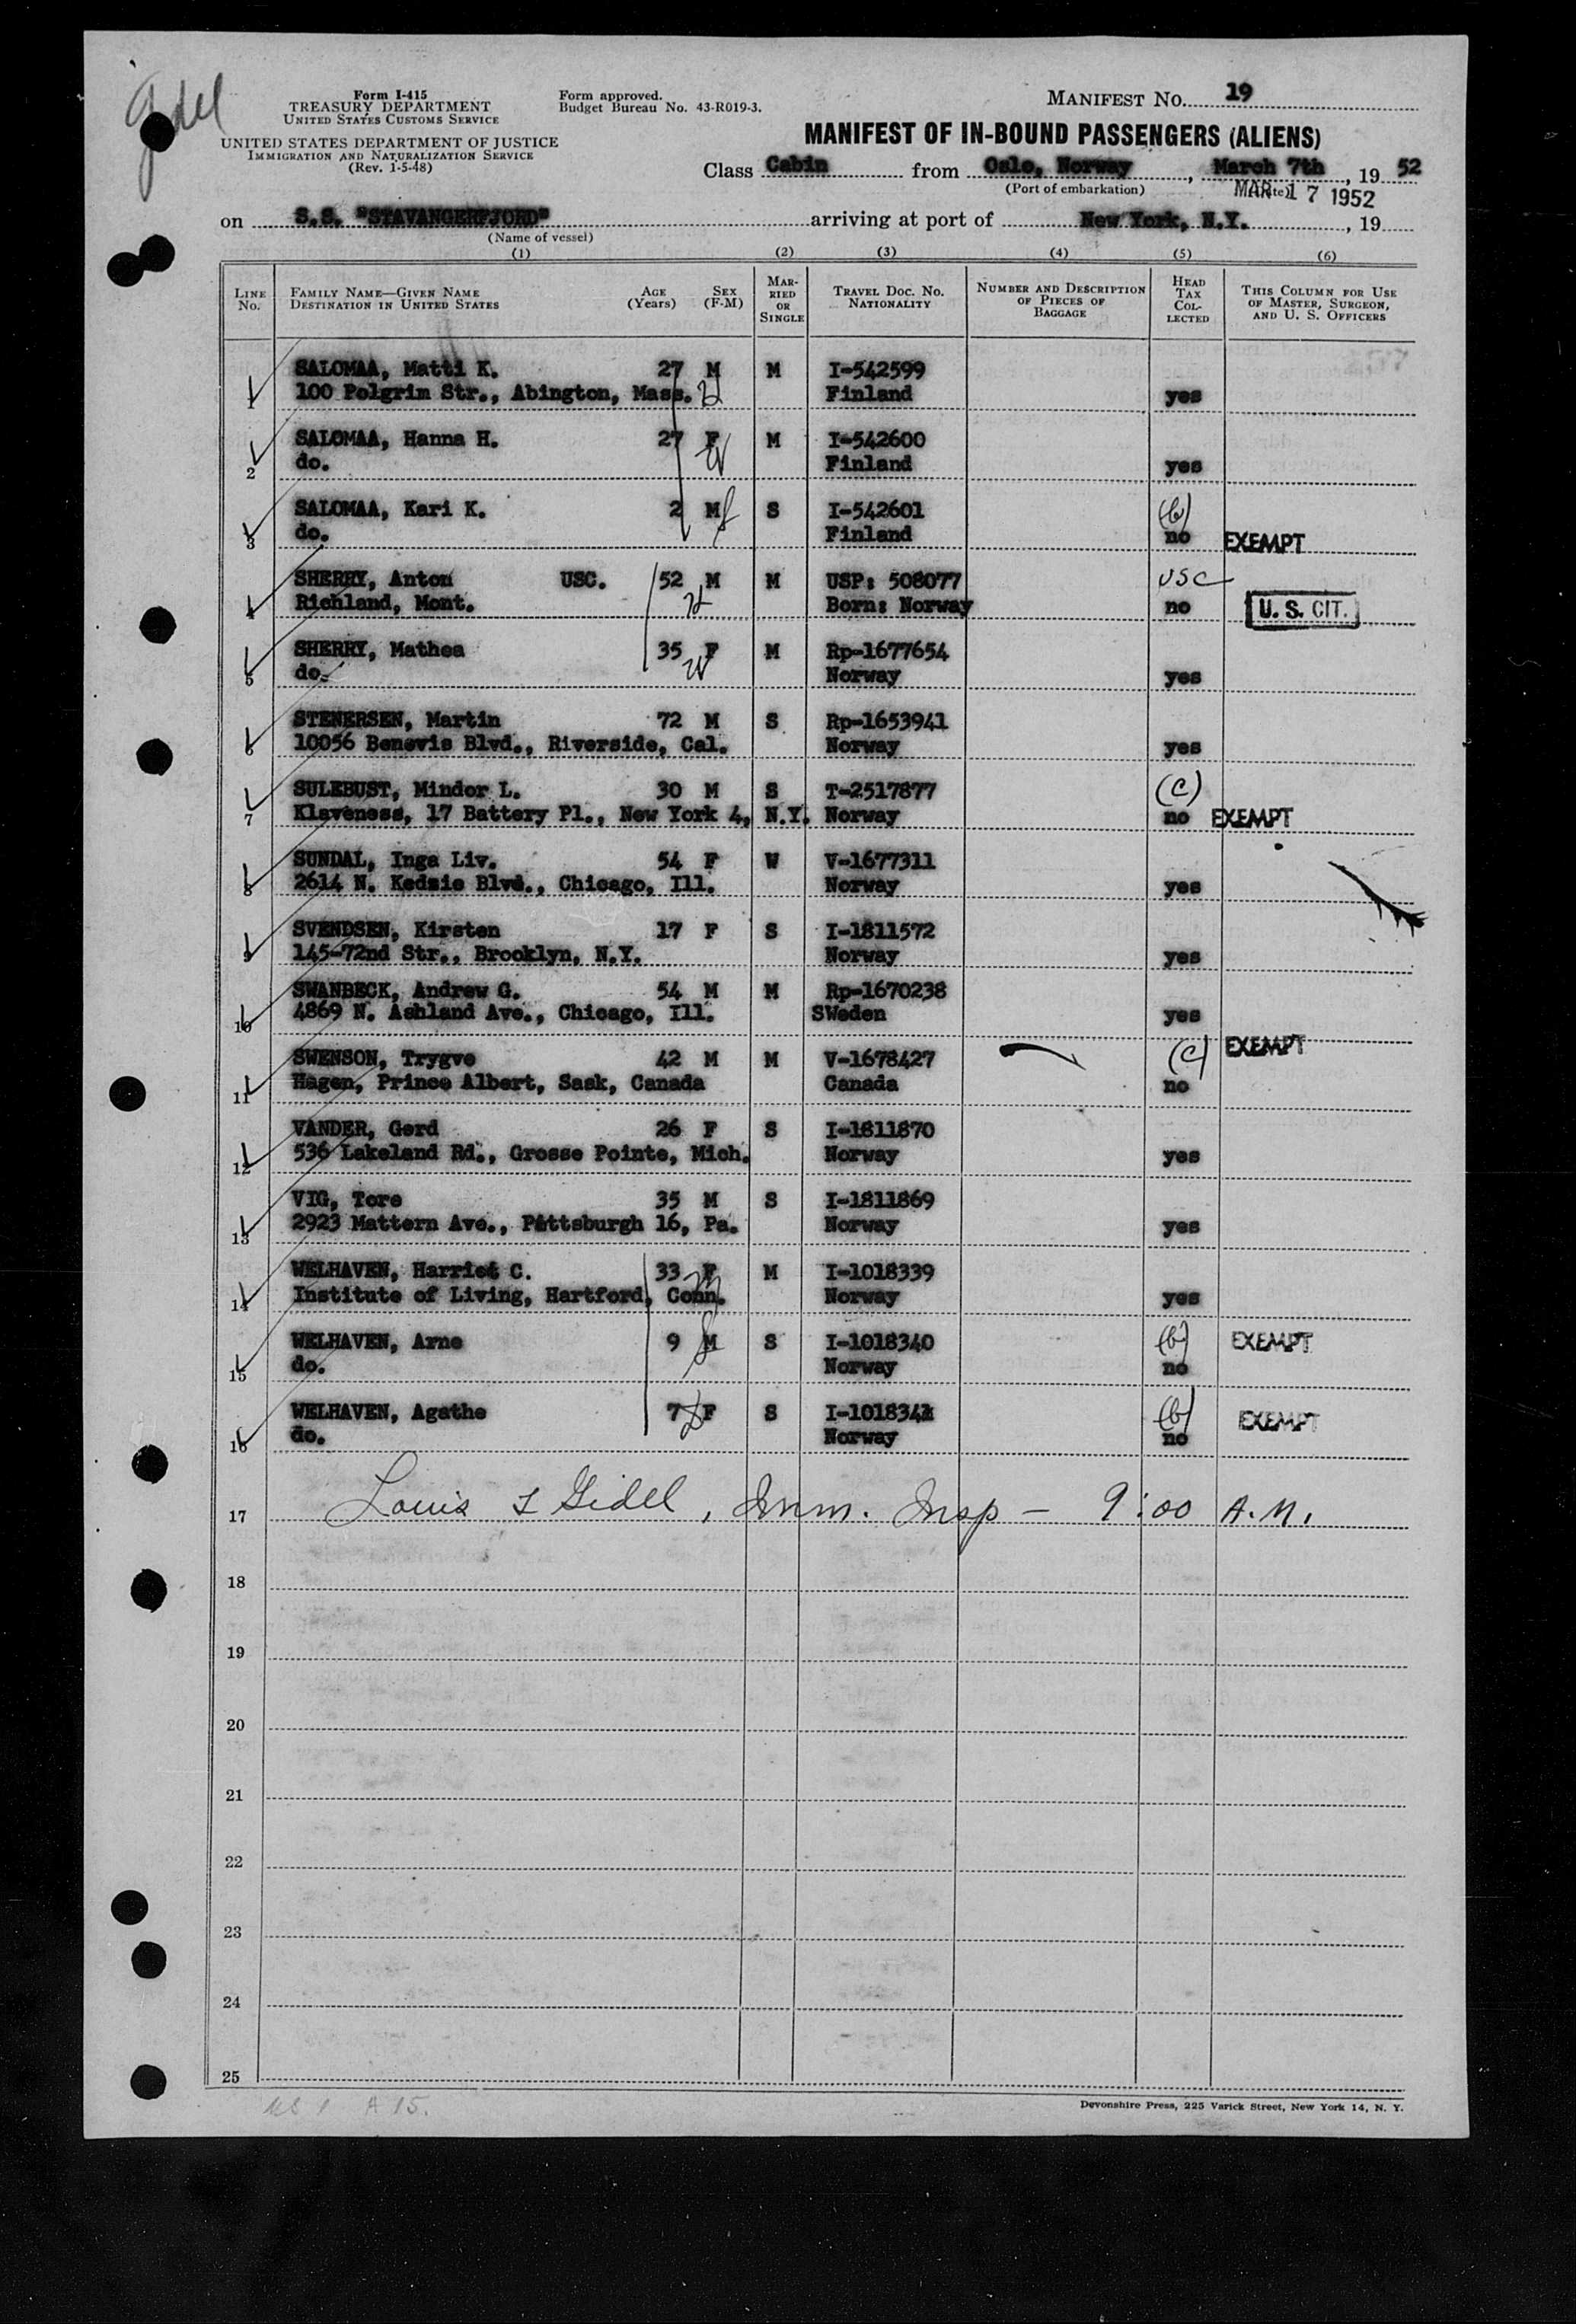 Gidel
Form I-415
TREASURY DEPARTMENT
UNITED STATES CUSTOMS SERVICE
UNITED STATES DEPARTMENT OF JUSTICE
IMMIGRATION AND NATURALIZATION SERVICE
(Rev. 1-5-48)
Form approved.
Budget Bureau No. 43-R019-3.
MANIFEST NO. 19
MANIFEST OF IN-BOUND PASSENGERS (ALIENS)
Class Cabin from Oslo, Norway, March 7th, 19 52
(Port of embarkation) (Date)
MAR 17 1952
on S.S. "STAVANGERFJORD" arriving at port of New York, N.Y., 19
(Name of vessel)
(1) (2) (3) (4) (5) (6)
LINE NO. FAMILY NAME—GIVEN NAME DESTINATION IN UNITED STATES AGE (Years) SEX (F-M) MARRIED OR SINGLE TRAVEL DOC. NO. NATIONALITY NUMBER AND DESCRIPTION OF PIECES OF BAGGAGE HEAD TAX COLLECTED THIS COLUMN FOR USE OF MASTER, SURGEON, AND U. S. OFFICERS
SALOMAA, Matti K. 27 M M I-542599
1 100 Polgrim Str., Abington, Mass. Finland yes
SALOMAA, Hanna H. 27 F M I-542600
2 do. Finland yes
SALOMAA, Kari K. 2 M S I-542601 (b)
3 do. Finland no EXEMPT
SHERRY, Anton USC. 52 M M USP: 508077 USC
4 Richland, Mont. Born: Norway no U. S. CIT.
SHERRY, Mathea 35 F M Rp-1677654
5 do. Norway yes
STENERSEN, Martin 72 M S Rp-1653941
6 10056 Benevis Blvd., Riverside, Cal. Norway yes
SULEBUST, Mindor L. 30 M S T-2517877 (c)
7 Klaveness, 17 Battery Pl., New York 4, N.Y. Norway no EXEMPT
SUNDAL, Inga Liv. 54 F W V-1677311
8 2614 N. Kedzie Blvd., Chicago, Ill. Norway yes
SVENDSEN, Kirsten 17 F S I-1811572
9 145-72nd Str., Brooklyn, N.Y. Norway yes
SWANBECK, Andrew G. 54 M M Rp-1670238
10 4869 N. Ashland Ave., Chicago, Ill. SWeden yes
SWENSON, Trygve 42 M M V-1678427 (c) EXEMPT
11 Hagen, Prince Albert, Sask, Canada Canada no
VANDER, Gerd 26 F S I-1811870
12 536 Lakeland Rd., Grosse Pointe, Mich. Norway yes
VIG, Tore 35 M S I-1811869
13 2923 Mattern Ave., Pittsburgh 16, Pa. Norway yes
WELHAVEN, Harriet C. 33 F M I-1018339
14 Institute of Living, Hartford, Conn. Norway yes
WELHAVEN, Arne 9 M S I-1018340 (b) EXEMPT
15 do. Norway no
WELHAVEN, Agathe 7 F S I-1018341 (b) EXEMPT
16 do. Norway no
17 Louis L Gidel, Imm. Insp — 9:00 A.M.
18
19
20
21
22
23
24
25
Devonshire Press, 225 Varick Street, New York 14, N. Y.